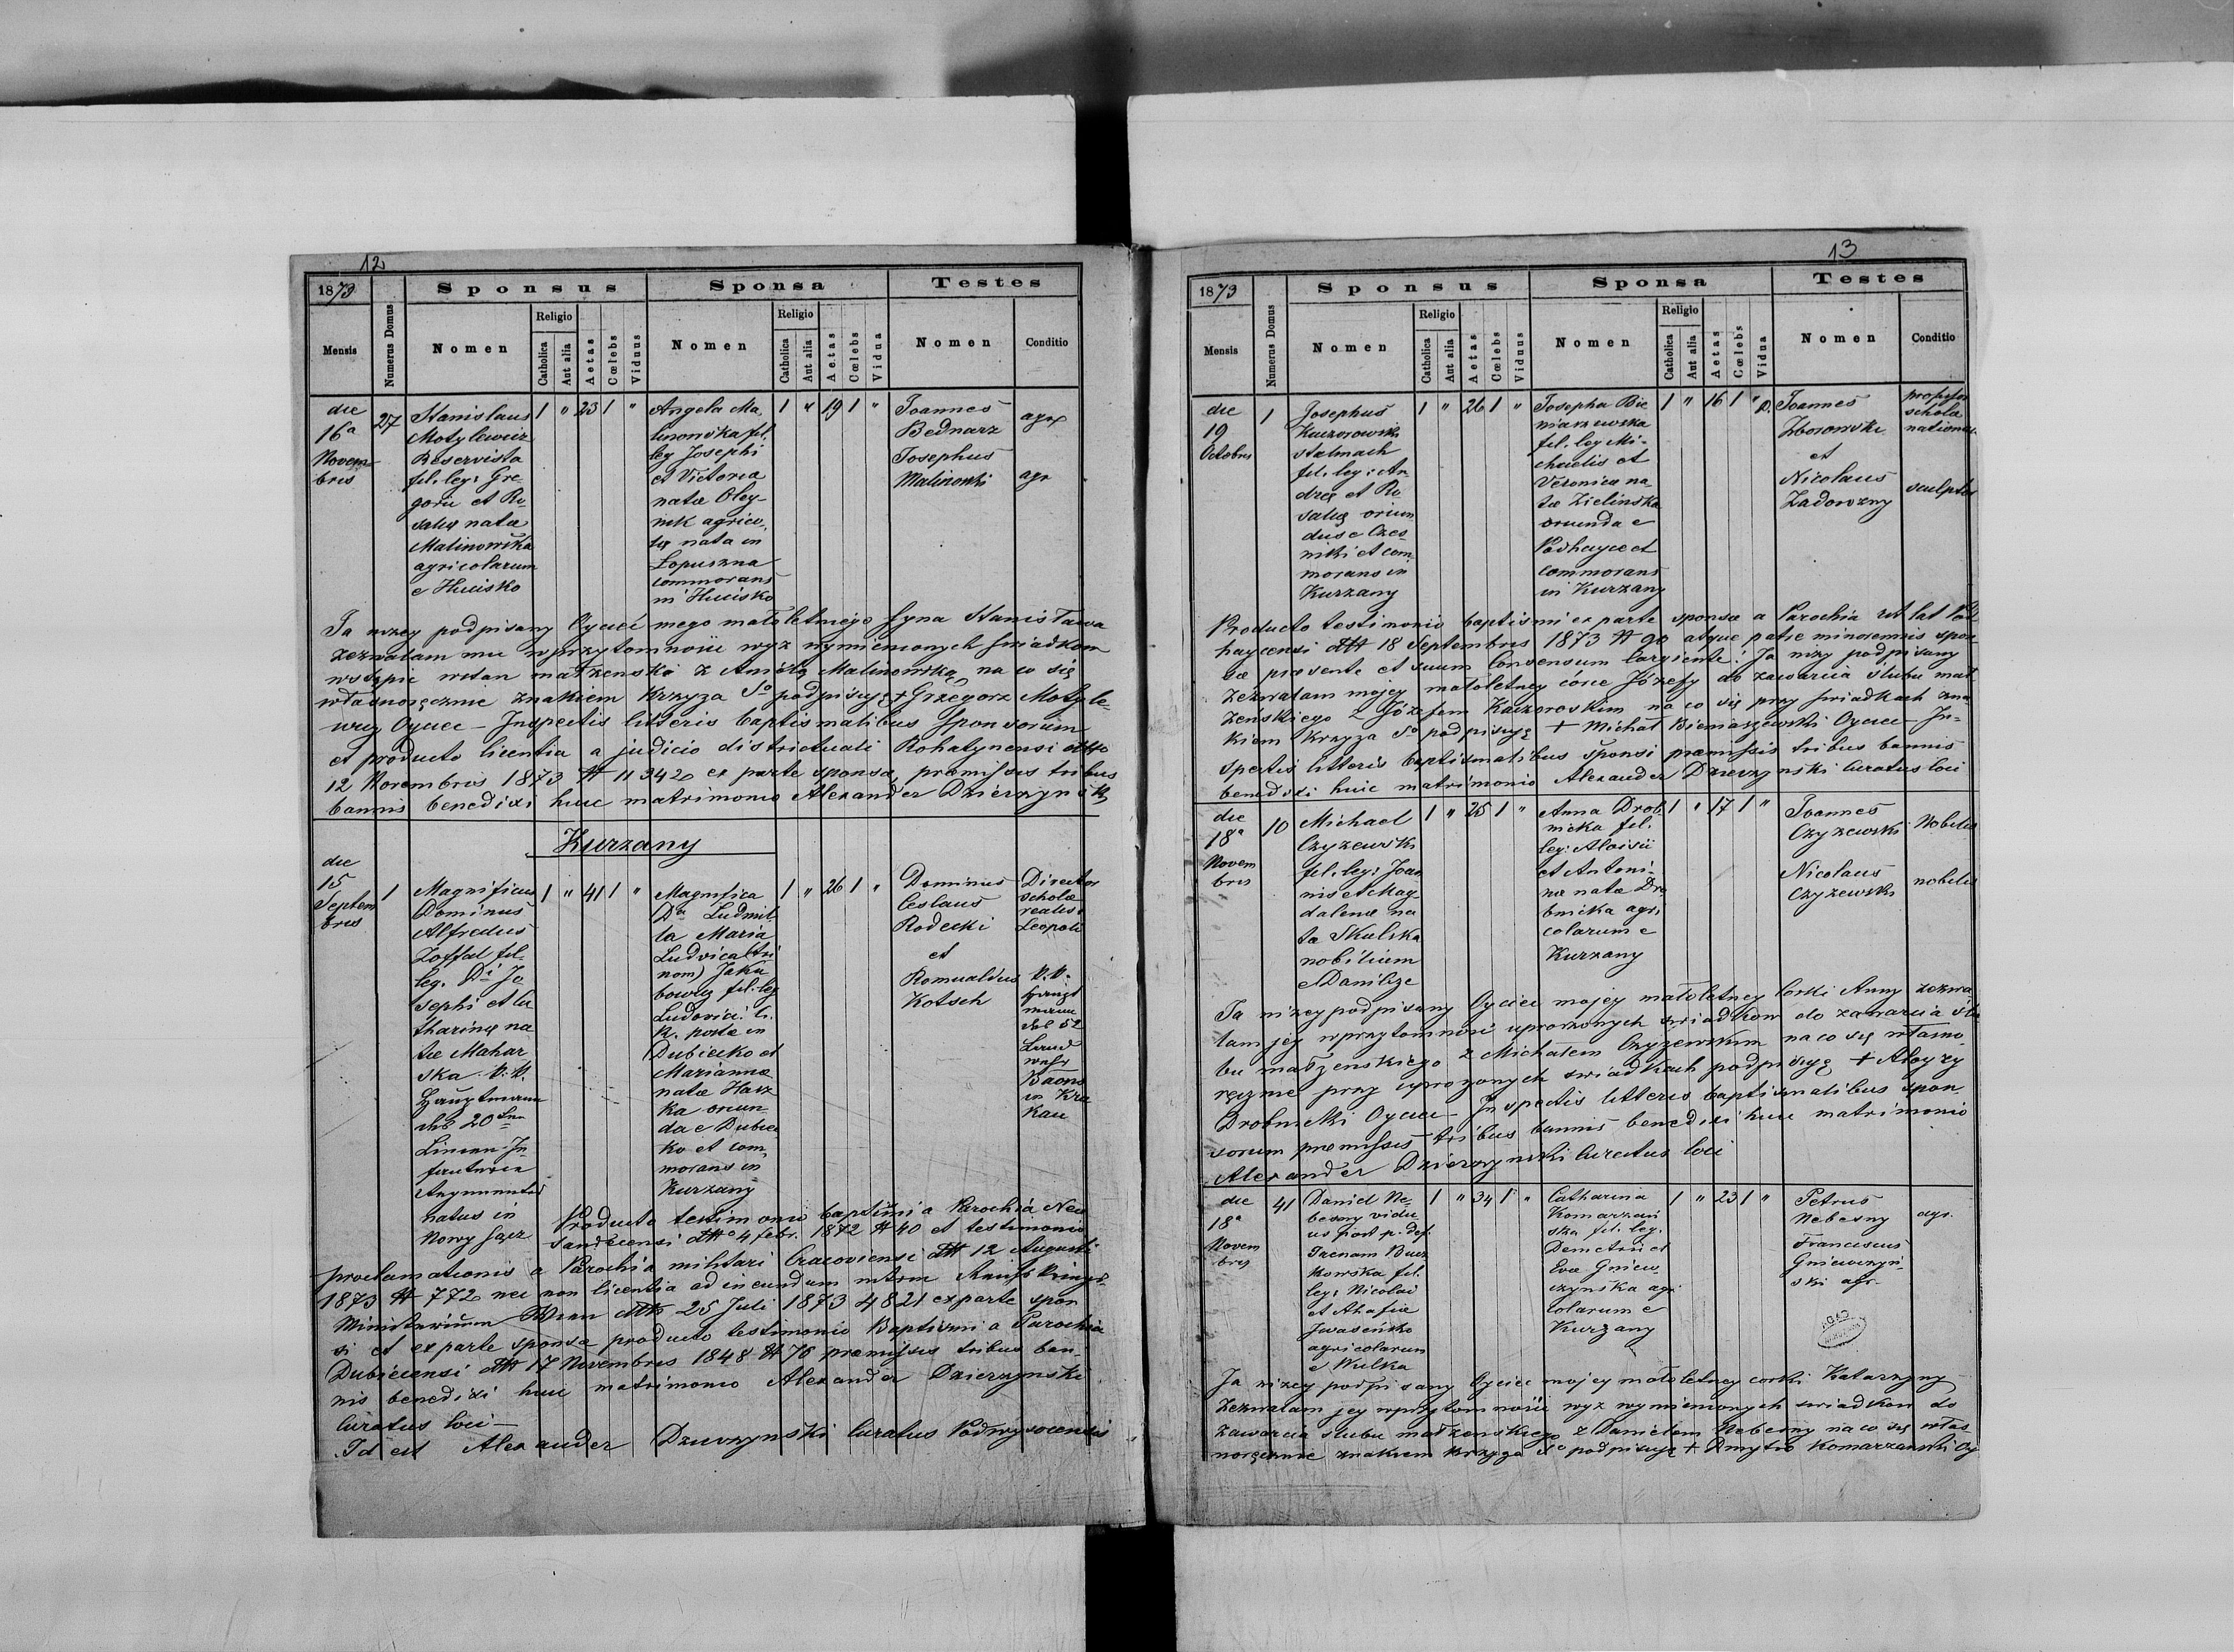 12
1873
Sponsus
Sponsa
Testes
Mensis
Numerus Domus
Nomen
Religio
Catholica
Aut alia
Aetas
Cœlebs
Viduus
Nomen
Religio
Catholica
Aut alia
Aetas
Cœlebs
Vidua
Nomen
Conditio
die
16a
Novem
bres
27
Stanislaus
Motylewicz
Reservista
fil. leg: Gre
gorii et Ro
salię natæ
Malinowska
agricolarum
e Hucisko
1 " 23 1 "
Angela Ma
linowska fil.
leg Josephi
et Victoria
natæ Oley
nik agrico
lę nata in
Lopuszna
commorans
in Hucisko
1 " 19 1 "
Joannes
Bednarz
Josephus
Malinowski
agr
agr
Ja nizey podpisany Oyciec mego małoletniego Syna Stanisława
zezwalam mu w przytomnosci wyz wymienionych swiadkow
wstąpic wstan małzenski z Anielą Malinowską na co się
własnoręcznie znakiem Krzyza So podpisuję + Grzegorz Motyle
wicz Oyciec – Inspectis litteris baptismatibus Sponsorum
et producto licentia a judicio districtuali Rohatynensi dtto
12 Novembres 1873 № 11342 ex parte sponsa, præmissis tribus
bannis benedixi huic matrimonio Alexander Dzierzynski
Kurzany
die
15
Septem
bres
1
Magnificus
Dominus
Alfredus
Zoffal fil.
leg. Di Jo
sephi et Ca
tharinę na
tæ Mahar
ska K.K.
Hauptmann
des 20ten
Linien In
fanterie
Regimentes
natus in
Nowy Sącz
1 " 41 1 "
Magnifica
Da Ludmil
la Maria
Ludvica (tri
nom) Jaku
bowicz fil. leg
Ludovici c.
R. poste in
Dubiecko et
Marianna
natæ Hasz
ka oriun
da e Dubiec
ko et com
morans in
Kurzany
1 " 26 1 "
Dominus
Ceslaus
Rodecki
et
Romualdus
Kotsch
Director
scholæ
realis
Leopoli
K.K.
Haupt
mann
des 52
Land
wehr
Baons
in Kra
kau
Producto testimonio baptismi a Parochia Neu
sandecensi dtto 4 febr. 1872 № 40 et testimonio
proclamationis a Parochia militari Cracoviensi dtto 12 Augusti
1873 № 772 nec non licentia ad ineundum mtrm Reichs Kriegs
Ministerium Wien dtto 25 Juli 1873 4821 ex parte spon
si et ex parte sponsæ producto testimonio Baptismi a Parochia
Dubiecensi dtto 17 Novembres 1848 № 76 præmissis tribus ban
nis benedixi huic matrimonio Alexander Dzierzynski
Curatus loci –
Id est Alexander Dzierzynski Curatus Podwysocensis
13
1873
Sponsus
Sponsa
Testes
Mensis
Numerus Domus
Nomen
Religio
Catholica
Aut alia
Aetas
Cœlebs
Viduus
Nomen
Religio
Catholica
Aut alia
Aetas
Cœlebs
Vidua
Nomen
Conditio
die
19
Octobres
1
Josephus
Kaczorowski
stelmach
fil. leg: An
dreę et Ro
salię oriun
dus e Czes
niki et com
morans in
Kurzany
1 " 26 1 "
Josepha Bie
niaszewska
fil. leg Mi
chaelis et
Veronicæ na
tæ Zielinska
oriunda e
Podhayce et
commorans
in Kurzany
1 " 16 1 "
D. Joannes
Zborowski
et
Nicolaus
Zadorozny
professor
schola
national
sculptor
Producto testimonio baptismi ex parte sponsæ a Parochia rit lat Pod
haycensi dtto 18 Septembres 1873 № 90 atque patre minorennis spon
sæ præsente et suum Consensum largiente: Ja nizy podpisany
zezwalam mojey małoletney córce Józefy do zawarcia ślubu mał
żeńskiego z Józefem Kaczorowskim na co się przy swiadkach zna
kiem Krzyza So podpisuję + Michał Bieniaszewski Oyciec – In
spectis litteris baptismatibus sponsi præmissis tribus bannis
benedixi huic matrimonio Alexander Dzierzynski Curatus loci
die
18a
Novem
bres
10
Michael
Czyzewski
fil. leg: Joan
nis et Mag
dalenæ na
tæ Skulska
nobilium
e Danilcze
1 " 25 1 "
Anna Drob
nicka fil.
leg: Aloisii
et Antoni
næ natæ Dro
bnicka agri
colarum e
Kurzany
1 " 17 1 "
Joannes
Czyzewski
Nicolaus
Czyzewski
Nobilis
nobilis
Ja nizey podpisany Oyciec mojey małoletney Corki Anny zezwa
lam jey w przytomnosci uproszonych swiadkow do zawarcia slu
bu małzenskiego z Michałem Czyzewskim na co się własno
ręcznie przy uproszonych swiadkach podpisuję + Aloyzy
Drobnicki Oyciec – Inspectis litteris baptismatibus spon
sorum præmissis tribus bannis benedixi huic matrimonio
Alexander Dzierzynski Curatus loci
die
18a
Novem
bres
41
Daniel Ne
besny vidu
us post p. def.
Parnam Bucz
kowska fil.
leg: Nicolai
et Ahafia
Iwasenko
agricolarum
e Wulka
1 " 34 1 "
Catharina
Komarzan
ska fil. leg.
Demetrii et
Eva Gniew
czynska agri
colarum e
Kurzany
1 " 23 1 "
Petrus
Nebesny
Franciscus
Gniewczyn
ski agr.
agr.
Ja nizey podpisany Oyciec mojey małoletney corki Katarzyny
Zezwalam jey w przytomnosci wyz wymienionych swiadkow do
zawarcia slubu małzenskiego z Danielem Nebesny na co się włas
noręcznie znakiem Krzyza So podpisuję + Dmytro Komarzanski Oy